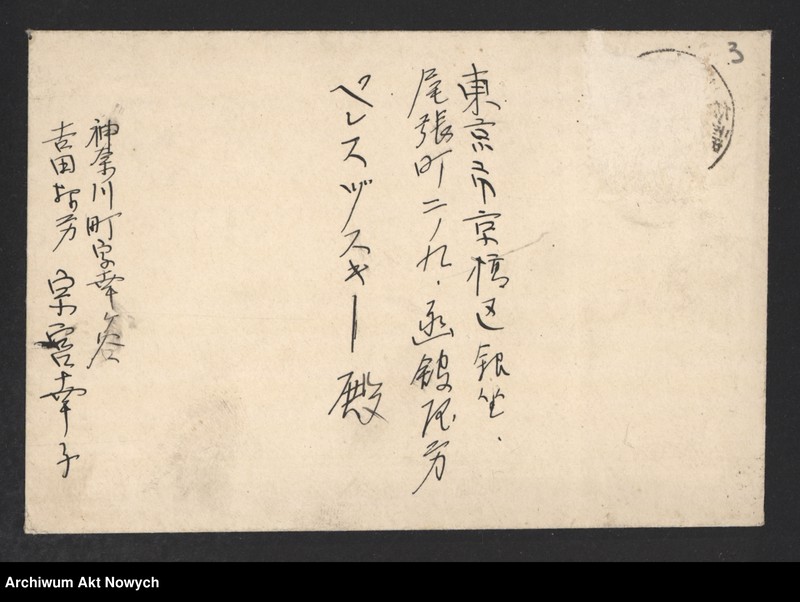 3
東京市京橋区銀坐、
尾張町二ノ九・函館屋方
ペレスヅスキー殿
神奈川町字幸ヶ谷
吉田 方 宗宮幸子
Archiwum Akt Nowych